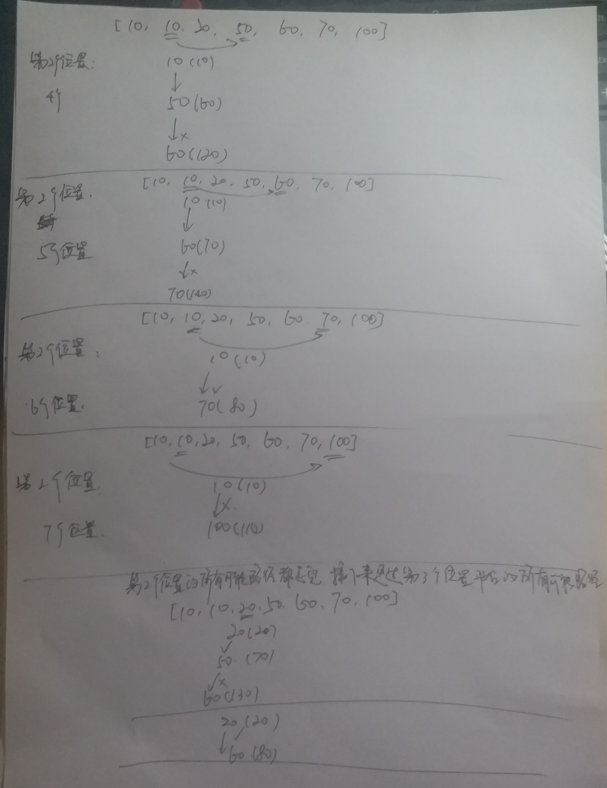 [10, 10, 20, 50, 60, 70, 100]
第2个位置:
10(10)
4个
50(60)
60(120)
[10, 10, 20, 50, 60, 70, 100]
第2个位置.
10(10)
5个位置
60(70)
70(140)
[10, 10, 20, 50, 60, 70, 100]
第2个位置:
10(10)
6个位置.
70(80)
[10, 10, 20, 50, 60, 70, 100]
第2个位置
10(10)
7个位置.
100(110)
第2个位置的所有可能路径都走完 接下来是走第3个位置开始的所有可能路径
[10, 10, 20, 50, 60, 70, 100]
20(20)
50(70)
60(130)
20(20)
60(80)